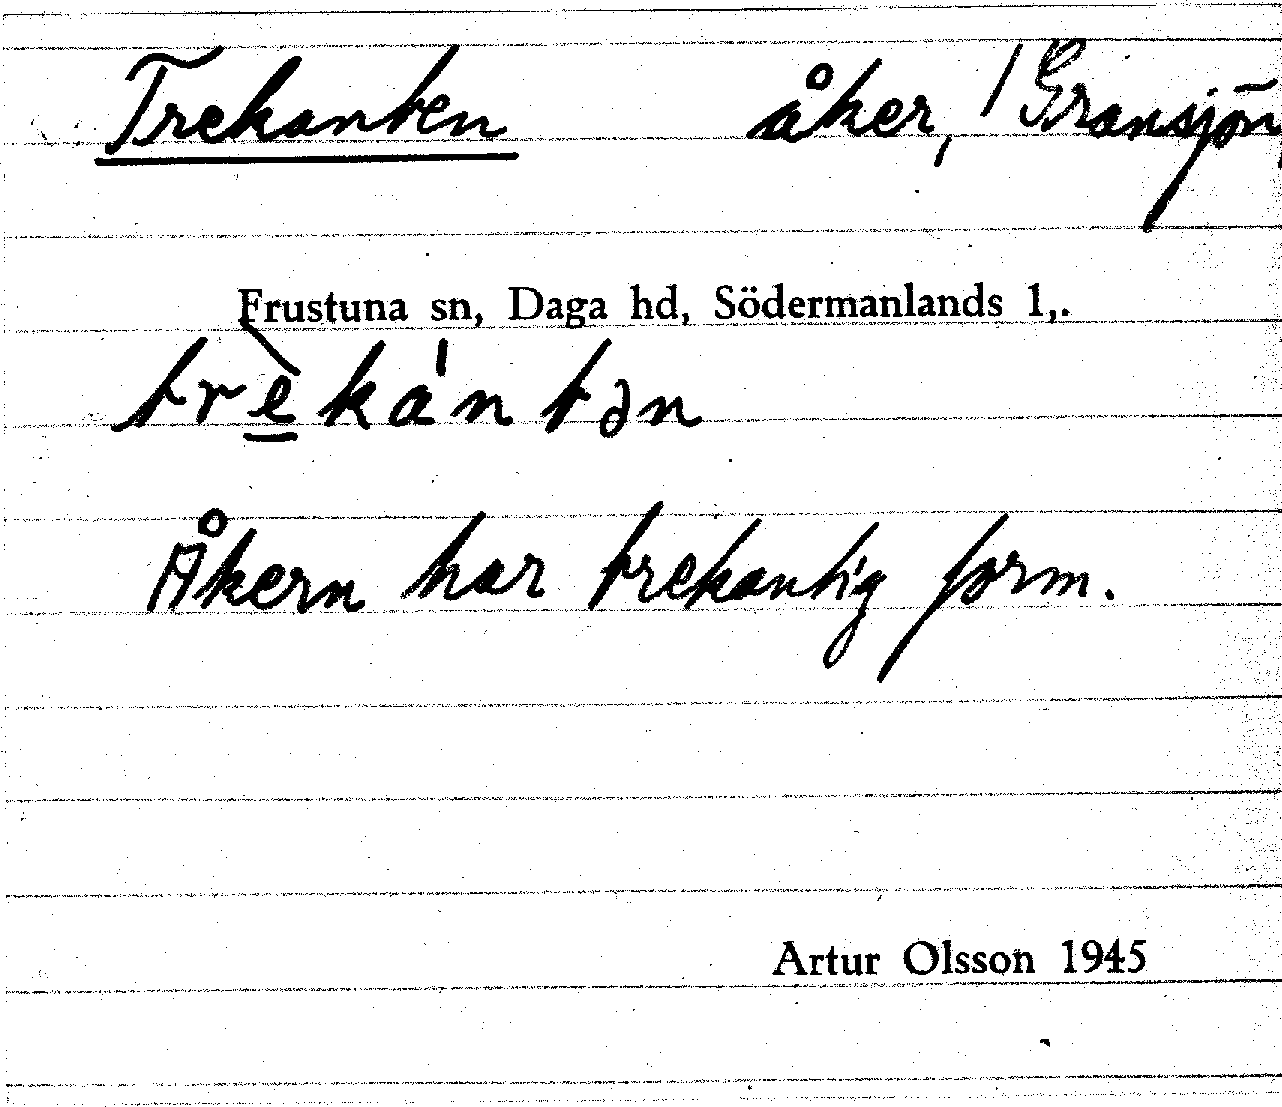 Trekanten åker, / Gransjön,
Frustuna sn, Daga hd, Södermanlands l,.
trè̲ká'ntən
Åkern har trekantig form.
Artur Olsson 1945